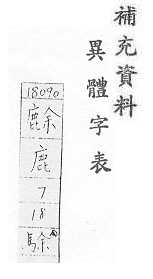 補充資料
異體字表
18090
鹿
7
18
駼